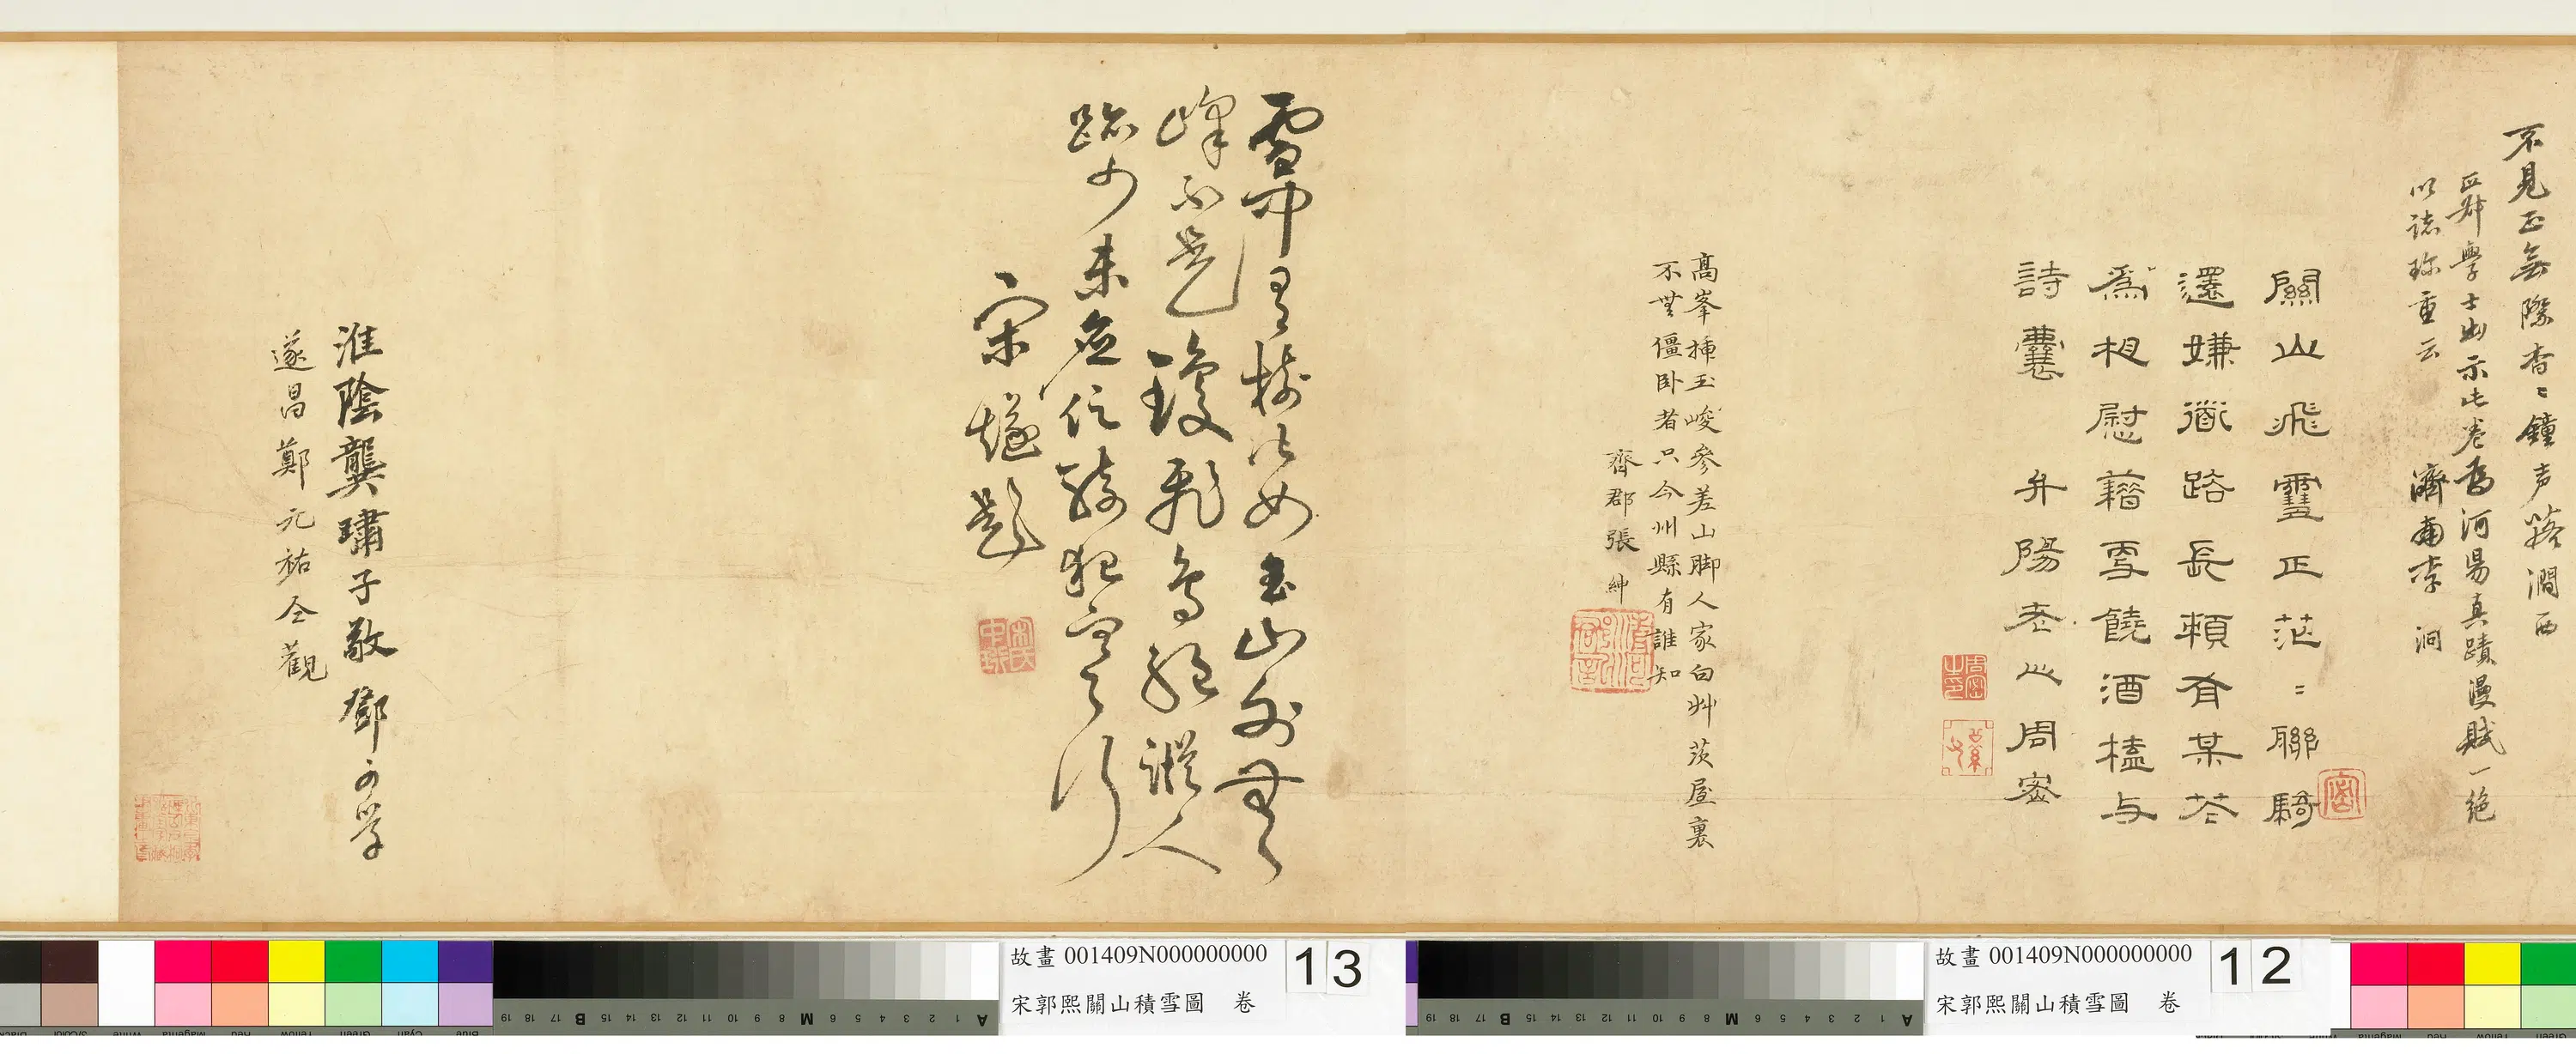 不見正無際杳〻鐘声落澗西
舜學士出示此卷為河陽真蹟漫賦一絕
以誌珍重云　濟南李洞
關山飛雪正茫〻聯騎
還嫌道路長賴有某花
為相慰藉雪饒酒榼与
詩囊　弁陽老人周密
高峯插玉峻參差山脚人家白艸茨屋裏
不無僵臥者只今州縣有誰知
齊郡張紳
雪中林如玉山外無
峰不是瓊飛鳥絕蹤人
跡少未應騎犯寒行
宋燧題
淮陰龔璛子敬鄧可學
遂昌鄭元祐仝觀
故畫 001409N000000000
宋郭熙關山積雪圖　卷
12
故畫 001409N000000000
宋郭熙關山積雪圖　卷
13